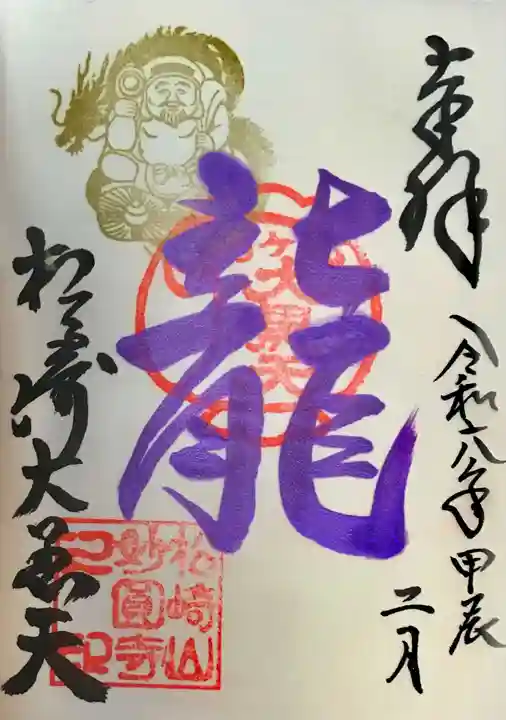 奉拝
令和六年甲辰
二月
龍
ヶ
大黒天
松ヶ崎大黒天
松崎山
妙圓寺
之印